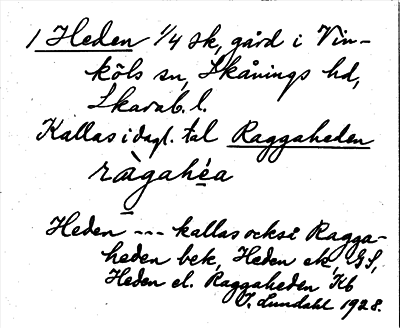 1 Heden 1/4 sk, gård i Vin-
köls sn, Skånings hd,
Skarab. l.
Kallas i dagl. tal Raggaheden
ràgahéa
Heden --- kallas också Ragga-
heden bek, Heden ek, GS,
Heden el. Raggaheden Kb
J. Lundahl 1928.